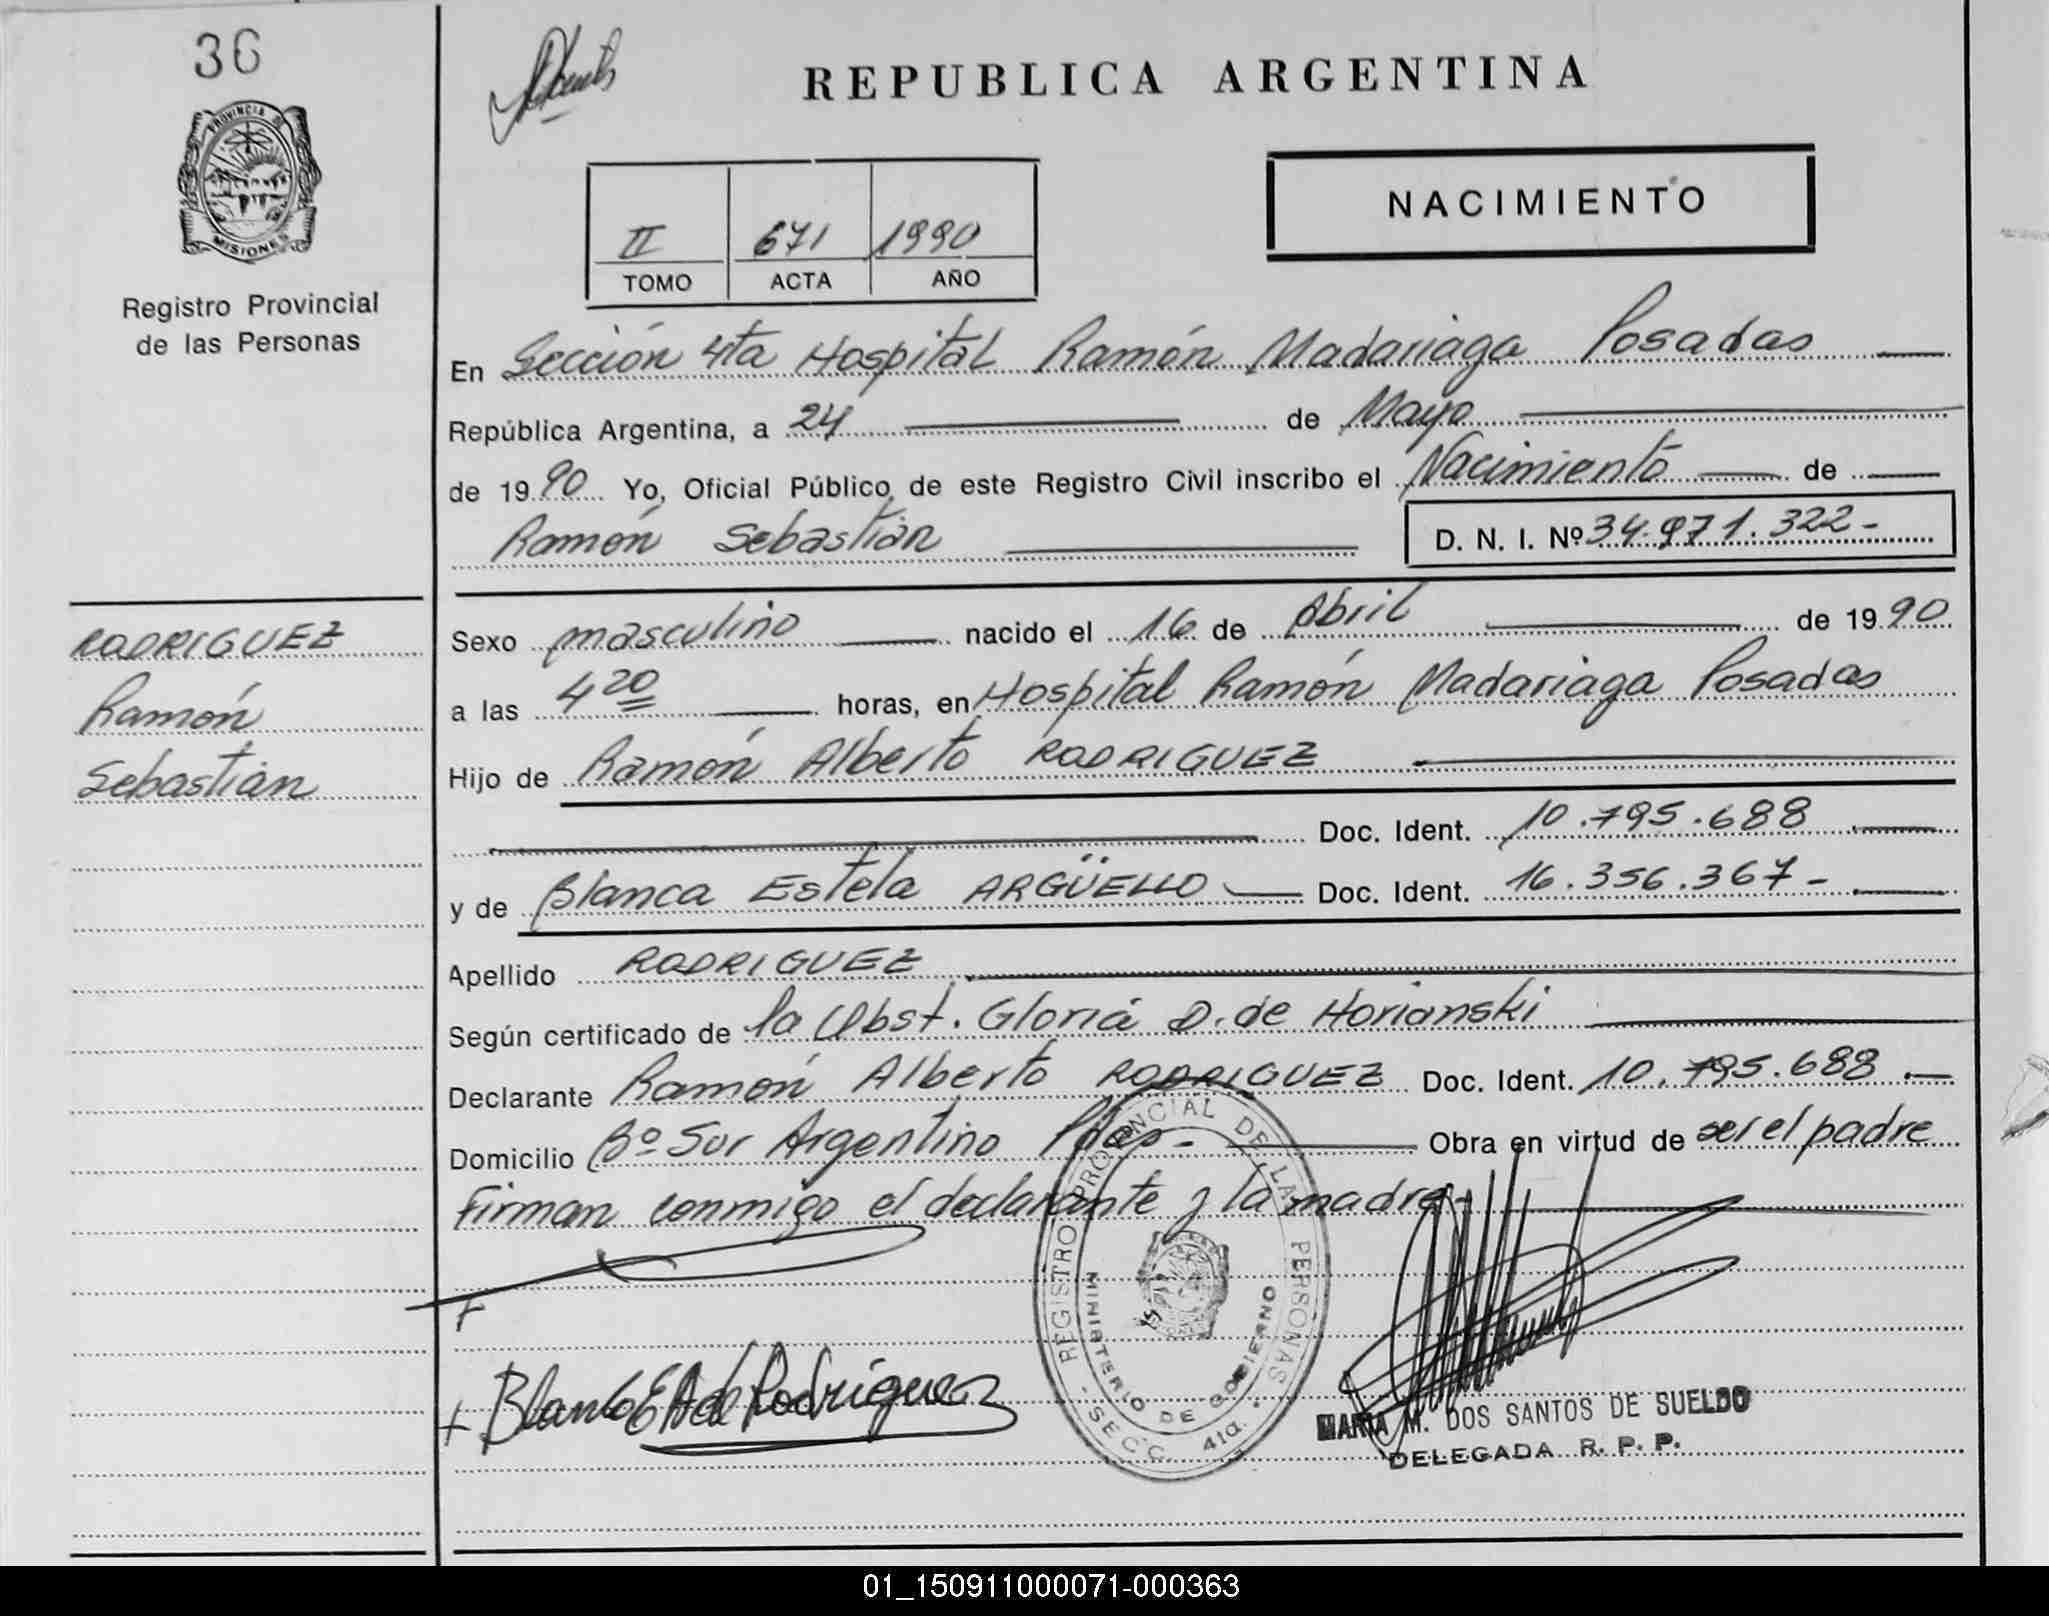 36
REPUBLICA ARGENTINA
PROVINCIA DE MISIONES
NACIMIENTO
II 671 1990
TOMO ACTA AÑO
Registro Provincial
de las Personas
En Sección 4ta Hospital Ramón Madariaga Posadas
República Argentina, a 24 de Mayo
de 1990 Yo, Oficial Público de este Registro Civil inscribo el Nacimiento de
Ramón Sebastián D. N. I. Nº 34.971.322-
RODRIGUEZ
Ramón
Sebastián
Sexo masculino nacido el 16 de Abril de 1990
a las 4 20 horas, en Hospital Ramón Madariaga Posadas
Hijo de Ramón Alberto RODRIGUEZ
Doc. Ident. 10.795.688
y de Blanca Estela ARGÜELLO Doc. Ident. 16.356.367-
Apellido RODRIGUEZ
Según certificado de la Obst. Gloria D. de Horianski
Declarante Ramón Alberto RODRIGUEZ Doc. Ident. 10.795.688.
Domicilio Bº Sur Argentino Pdas- Obra en virtud de ser el padre
Firman conmigo el declarante y la madre-
REGISTRO PROVINCIAL DE LAS PERSONAS
MINISTERIO DE GOBIERNO
- SECC. 4ta. -
+ Blanca E A de Rodriguez
MARIA M. DOS SANTOS DE SUELDO
DELEGADA R. P. P.
01_150911000071-000363